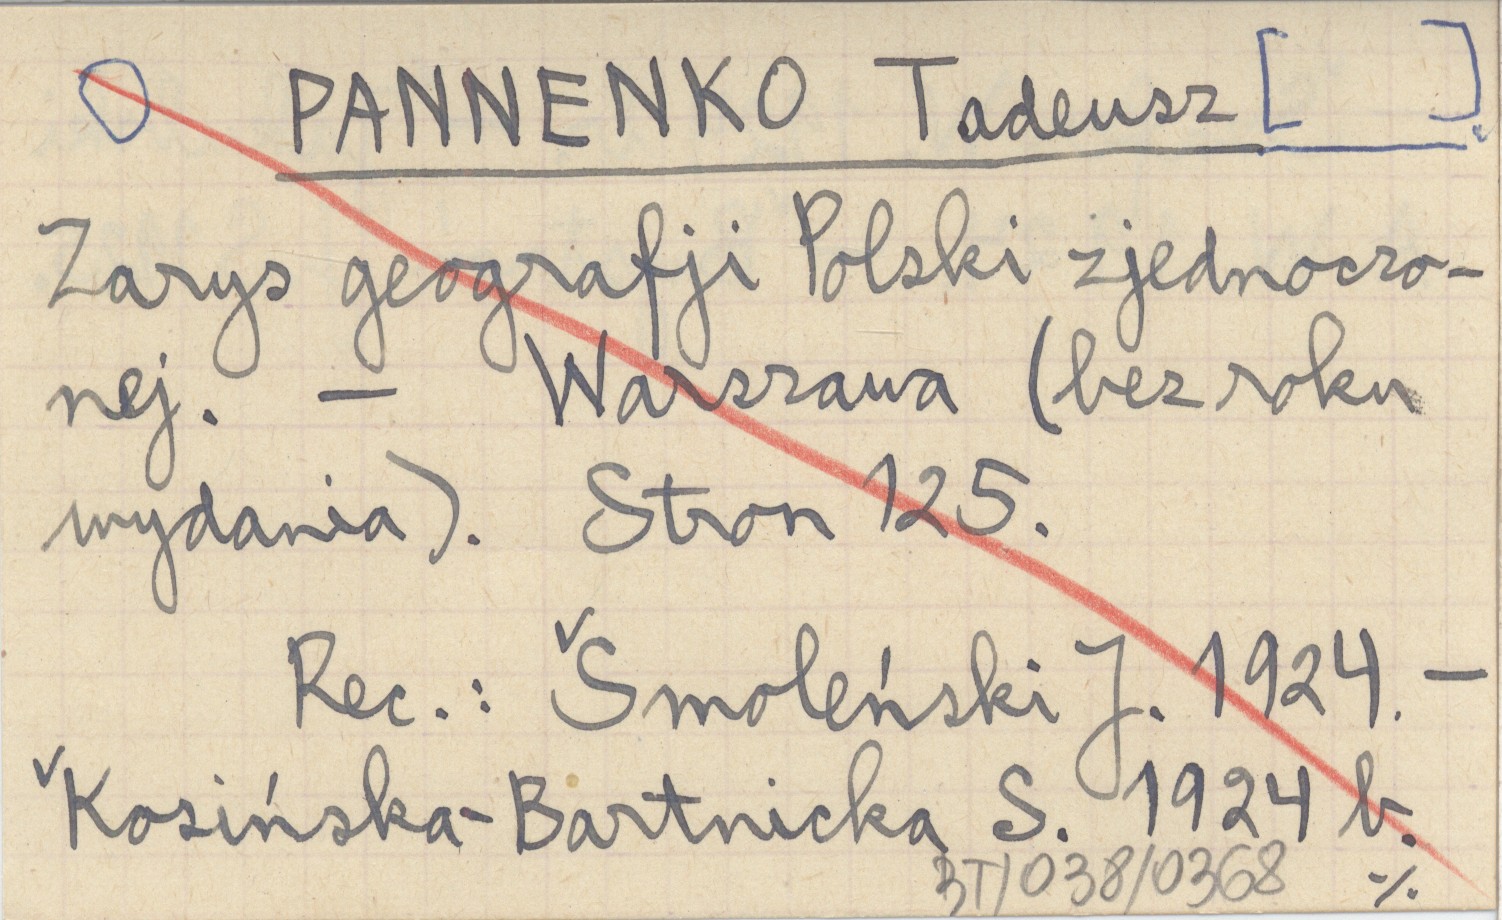 PANNENKO Tadeusz [ ]
Zarys geografji Polski zjednoczo-
nej. — Warszawa (bez roku
wydania). Stron 125.
Rec.: Smoleński J. 1924. —
Kosińska-Bartnicka S. 1924 b.
BT/038/0368 ./.